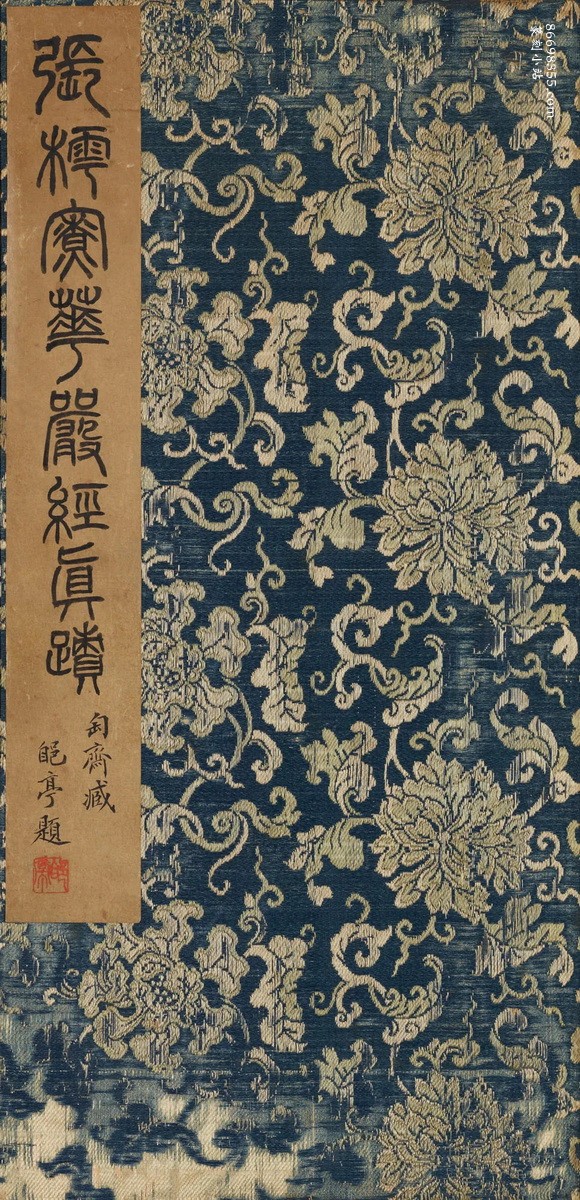 張樗寮華嚴經真蹟
匋齋臧
瓟亭題
86698555.com
篆刻小站